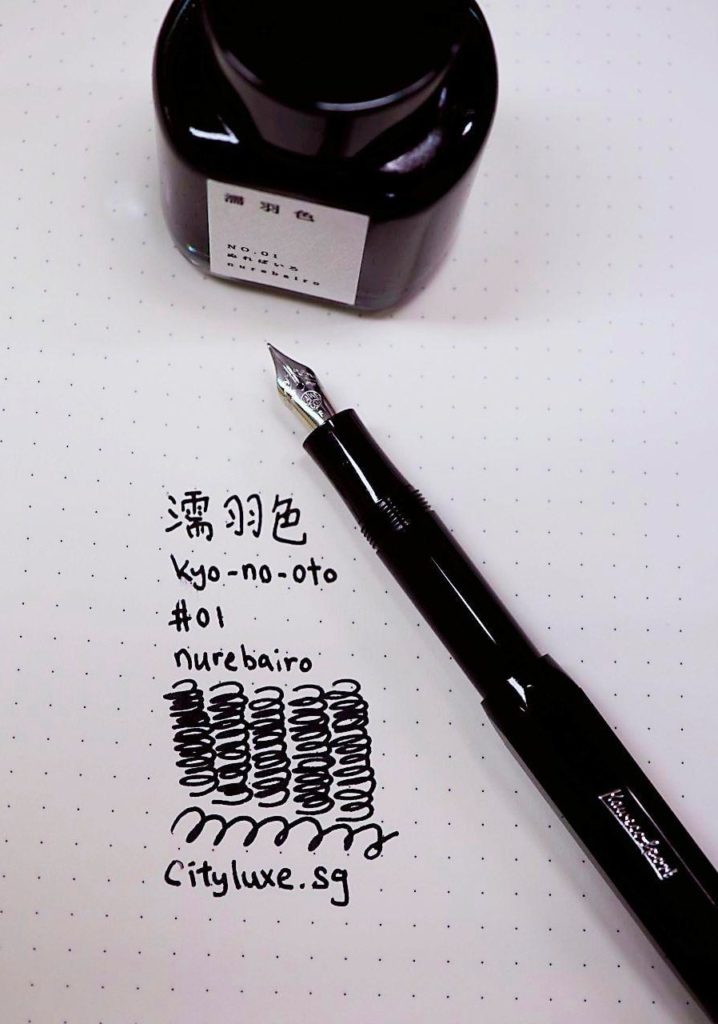 濡羽色
NO.01
ぬればいろ
nurebairo
濡羽色
kyo-no-oto
#01
nurebairo
Cityluxe.sg
Kaweco Sport